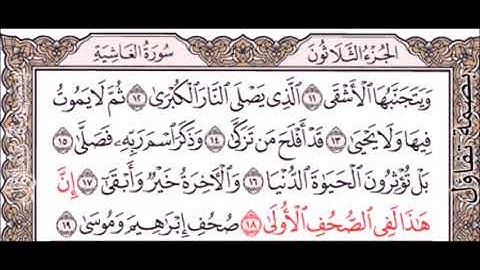 الجُزءُ الثَّلَاثُونَ
سُورَةُ الغَاشِيَةِ
وَيَتَجَنَّبُهَا ٱلْأَشْقَى ١١ ٱلَّذِى يَصْلَى ٱلنَّارَ ٱلْكُبْرَىٰ ١٢ ثُمَّ لَا يَمُوتُ
فِيهَا وَلَا يَحْيَىٰ ١٣ قَدْ أَفْلَحَ مَن تَزَكَّىٰ ١٤ وَذَكَرَ ٱسْمَ رَبِّهِۦ فَصَلَّىٰ ١٥
بَلْ تُؤْثِرُونَ ٱلْحَيَوٰةَ ٱلدُّنْيَا ١٦ وَٱلْآخِرَةُ خَيْرٌ وَأَبْقَىٰٓ ١٧ إِنَّ
هَٰذَا لَفِى ٱلصُّحُفِ ٱلْأُولَىٰ ١٨ صُحُفِ إِبْرَٰهِيمَ وَمُوسَىٰ ١٩
بصمة تفاؤل